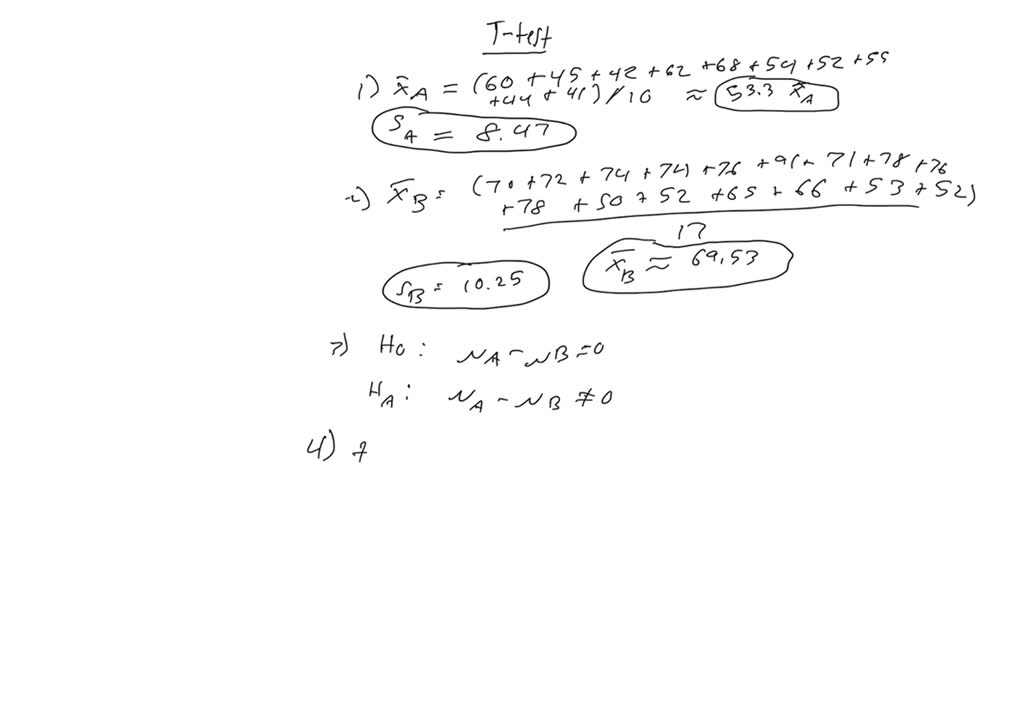 T-test
1) x̄A = (60 + 45 + 42 + 62 + 68 + 54 + 52 + 55
+44 + 41) / 10 ≈ 53.3 x̄A
SA = 8.47
2) x̄B = (70 + 72 + 74 + 74) + 76 + 91 + 71 + 78 + 76
+78 + 50 + 52 + 65 + 66 + 53 + 52)
17
SB = 10.25 x̄B ≈ 69.53
3) H0 : μA - μB = 0
HA : μA - μB ≠ 0
4) t